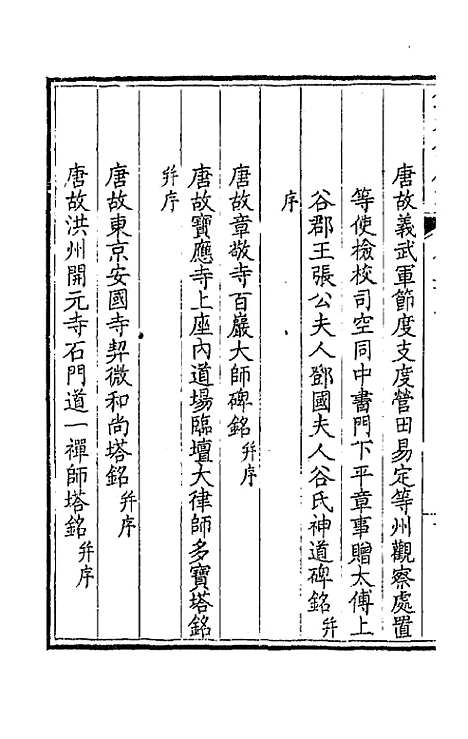 唐故義武軍節度支度營田易定等州觀察處置
等使檢校司空同中書門下平章事贈太傅上
谷郡王張公夫人鄧國夫人谷氏神道碑銘并
序
唐故章敬寺百巖大師碑銘并序
唐故寶應寺上座內道場臨壇大律師多寶塔銘
并序
唐故東京安國寺契微和尚塔銘并序
唐故洪州開元寺石門道一禪師塔銘并序